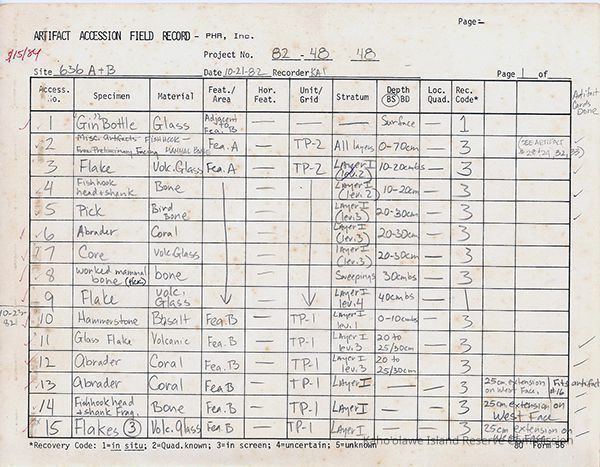 Page-
ARTIFACT ACCESSION FIELD RECORD - PHR, Inc.
3/15/84
Project No. 82 - 48 48
Site 636 A+B Date 10-21-82 Recorder KAT Page 1 of
Access. No. Specimen Material Feat./ Area Hor. Feat. Unit/ Grid Stratum Depth (BS)BD Loc. Quad. Rec. Code*
Artifact Cards Done
1 "Gin" Bottle Glass Adjacent Fea. B — — — Surface — 1
2 Misc. Artifacts - Fishhook - From Preliminary Facing Mammal Bone Fea. A — TP-2 All layers 0-70cm — 3 (SEE ARTIFACT # 28+29, 32, 33)
3 Flake Volc. Glass Fea. A — TP-2 Layer I (lev. 2) 10-20cmbs — 3
4 Fishhook head+shank Bone — Layer I (lev. 2) 10-20cm — 3
5 Pick Bird Bone — Layer I (lev. 3) 20-30cm — 3
6 Abrader Coral — Layer I (lev. 3) 20-30cm — 3
7 Core Volc. Glass — Layer I (lev. 3) 20-30cm — 3
8 worked mammal bone (pick) bone — Sweepings 30cmbs — 3
9 Flake volc. Glass — Layer I lev. 4 40cmbs — 1
10-23-82
10 Hammerstone Basalt Fea. B — TP-1 Layer I lev. 1 0-10cmbs — 3
11 Glass Flake Volcanic Fea. B — TP-1 Layer I lev. 3 20 to 25/30cm — 3
12 Abrader Coral Fea. B — TP-1 Layer I lev. 3 20 to 25/30cm — 3
13 Abrader Coral Fea B — TP-1 Layer I — — 3 25cm extension on West Face. Fits artifact #16
14 Fishhook head + shank Frag. Bone Fea. B — TP-1 Layer I — 3 25cm extension on West Face
15 Flakes (3) Volc. Glass Fea. B — TP-1 Layer I — 3 25cm extension on West Face
Kaho'olawe Island Reserve Commission
*Recovery Code: 1=in situ; 2=Quad.known; 3=in screen; 4=uncertain; 5=unknown 80 Form 56